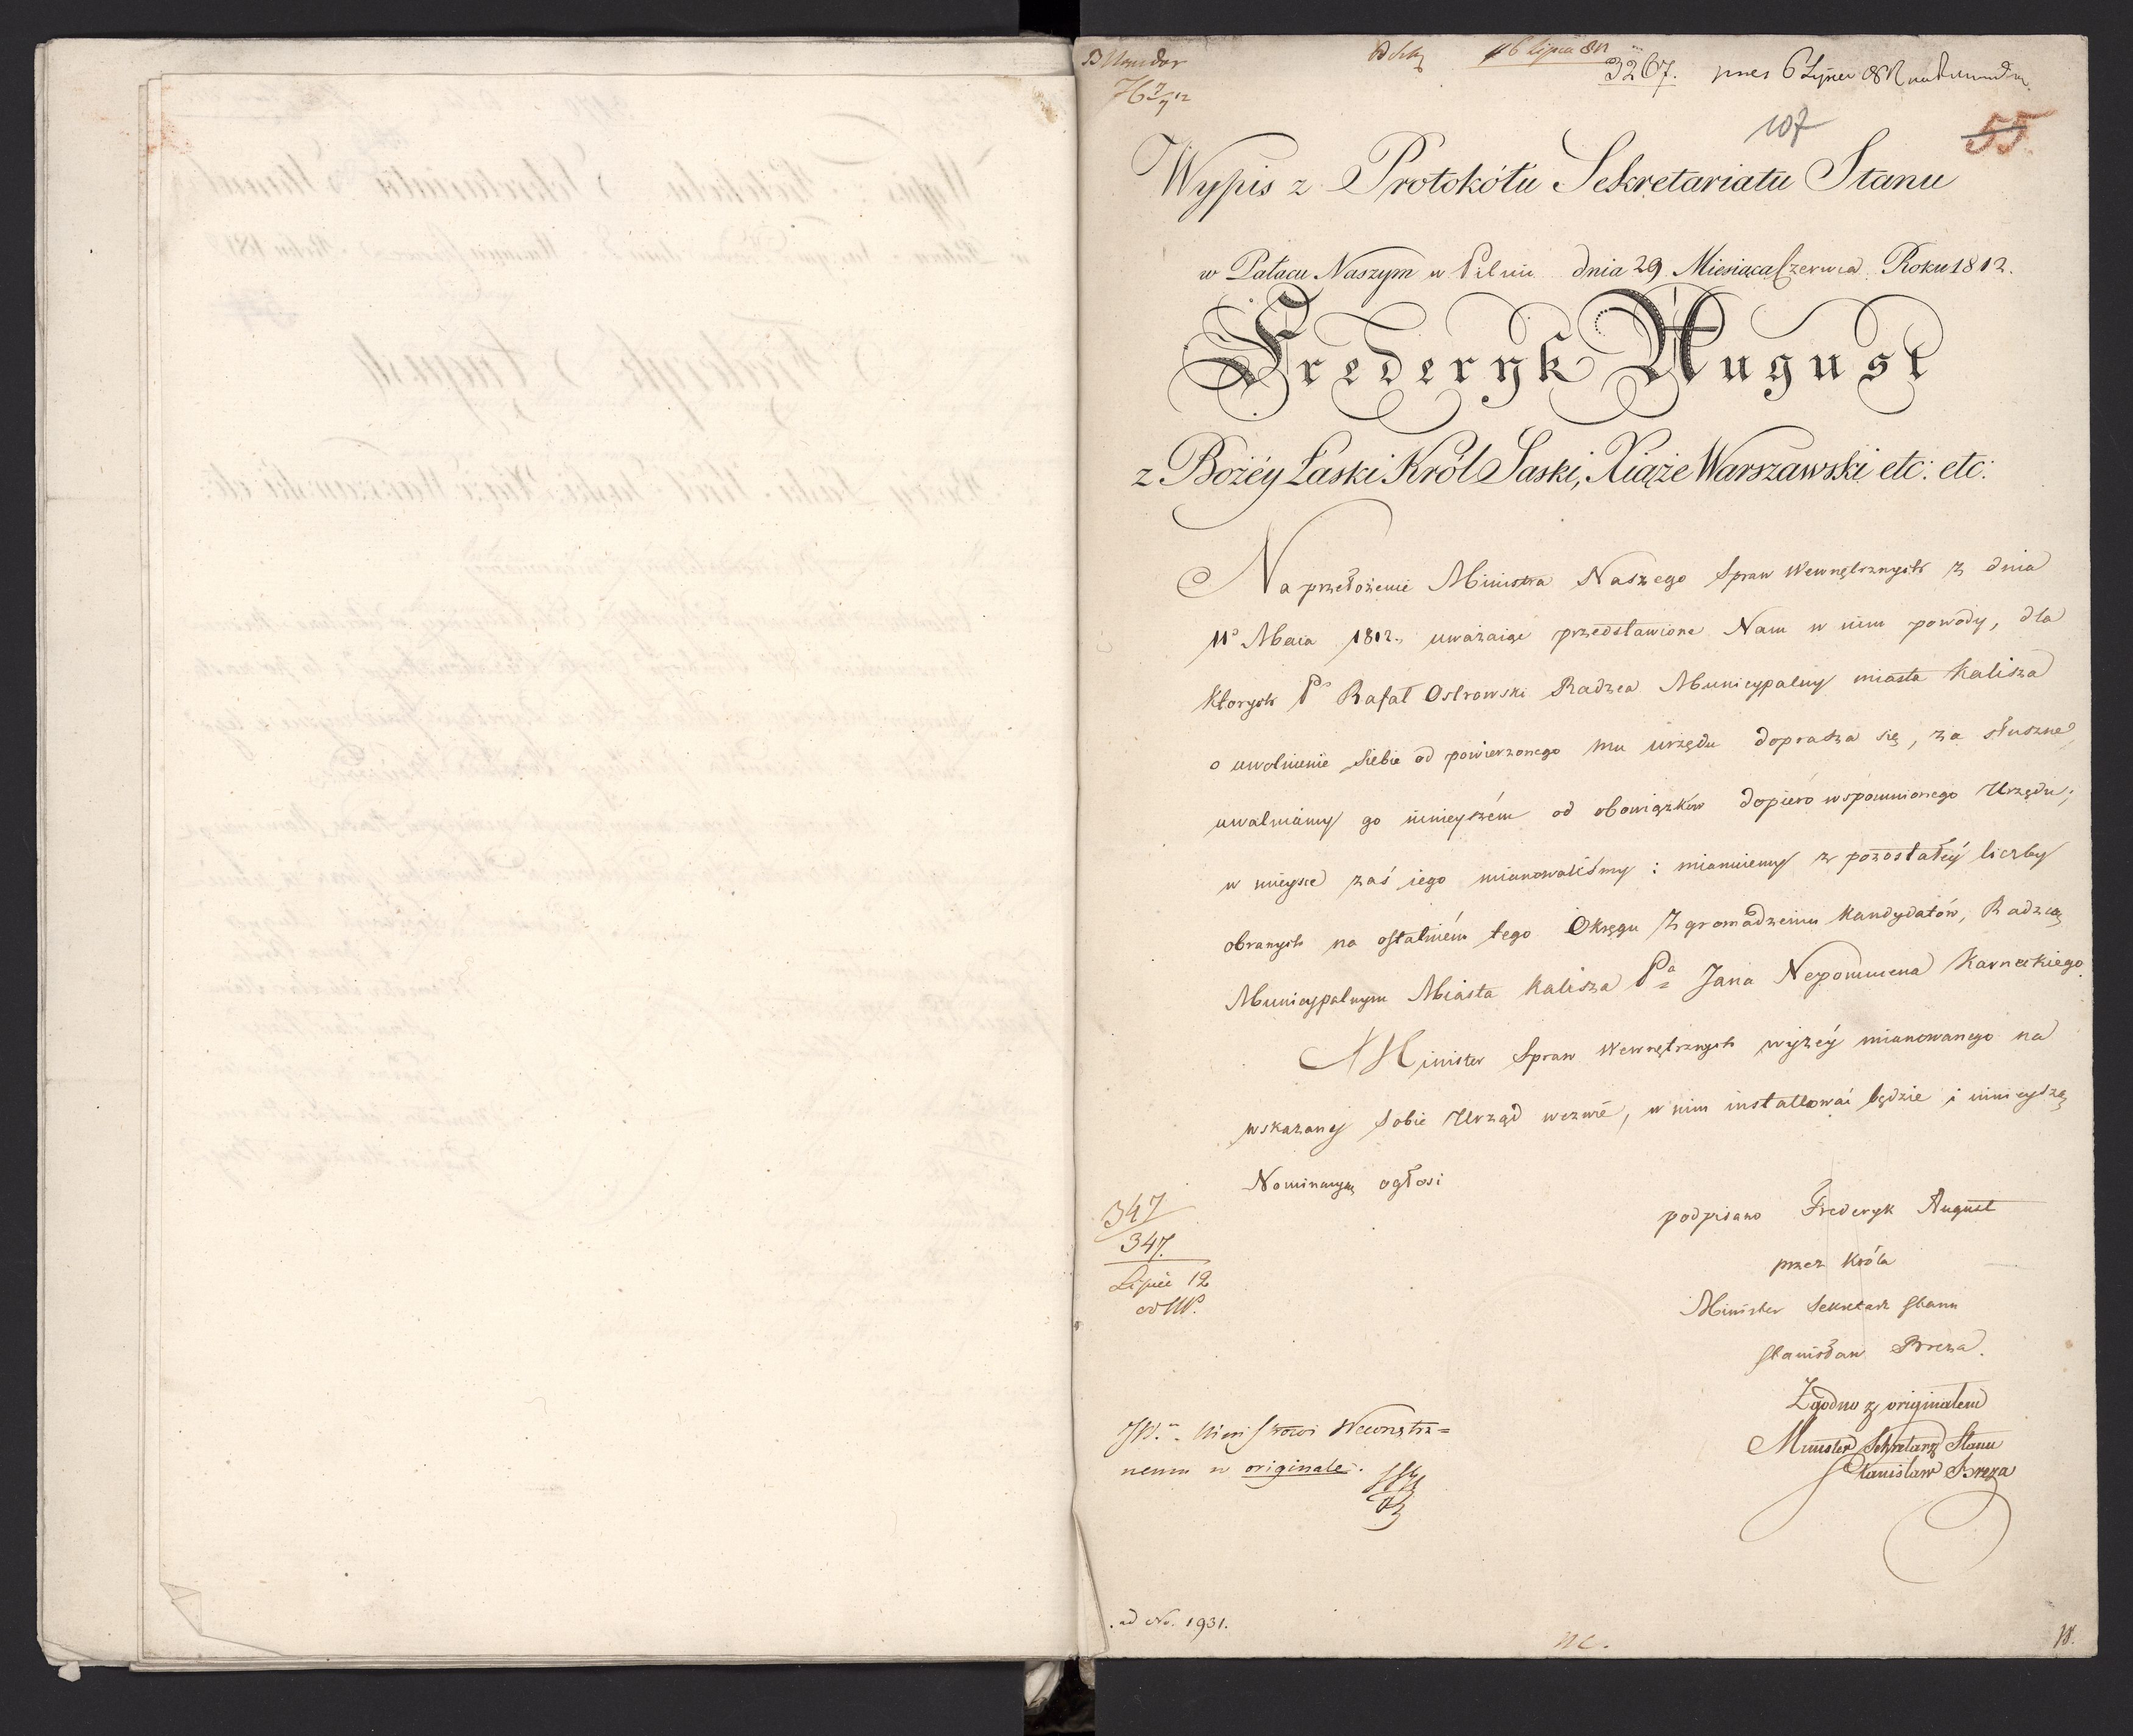 16 lipca 812
3267. pres 6 Lipca 812
76
107
55.
Wypis z Protokółu Sekretariatu Stanu
w Pałacu Naszym w Pilnic dnia 29 Miesiąca Czerwca Roku 1812.
Frederyk August
z Bożéy Łaski Król Saski, Xiąże Warszawski etc: etc:
Na przełożenie Ministra Naszego Spraw Wewnętrznych z dnia
11º Maia 1812., uważaiąc przedstawione Nam w nim powody, dla
których P. Rafał Ostrowski Radzca Municypalny miasta Kalisza
o uwolnienie siebie od powierzonego mu urzędu doprasza się, za słuszne,
uwalniamy go ninieyszém od obowiązków dopiéro wspomnionego Urzędu;
w mieysce zaś iego mianowaliśmy i mianuiemy z pozostałéy liczby
obranych na ostatniém tego Okręgu Zgromadzeniu Kandydatów, Radzcą
Municypalnym Miasta Kalisza Pª Jana Nepomucena Karneckiego.
Minister Spraw Wewnętrznych wyżéy mianowanego na
wskazany sobie Urząd wezwie, w nim installować będzie i ninieyszą
Nominacyą ogłosi
podpisano Frederyk August
przez Króla
Minister Sekretarz Stanu
Stanisław Breza.
347
347.
Lipiec 12
Zgodno z originałem
Minister Sekretarz Stanu
Stanisław Breza
JW. Ministrowi Wewnętrz=
nemu w originale.
ad No. 1931.